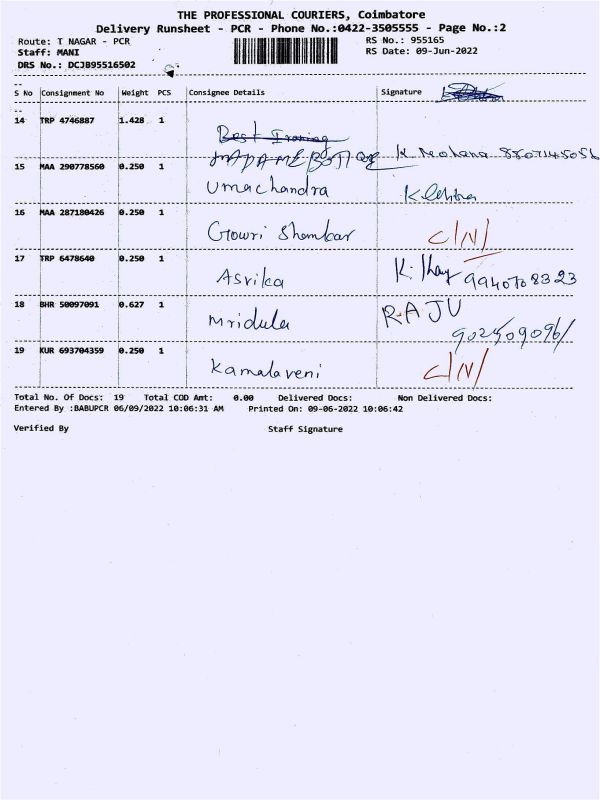 THE PROFESSIONAL COURIERS, Coimbatore
Delivery Runsheet - PCR - Phone No.:0422-3505555 - Page No.:2
Route: T NAGAR - PCR RS No.: 955165
Staff: MANI RS Date: 09-Jun-2022
DRS No.: DCJB95516502
S No Consignment No Weight PCS Consignee Details Signature
14 TRP 4746887 1.428 1
Best Ironing
K Mohana 8807145056
15 MAA 290778560 0.250 1 Umachandra
16 MAA 287180426 0.250 1 Gowri Shankar C/N/
17 TRP 6478640 0.250 1 Asvika 9940708323
18 BHR 50097091 0.627 1 Mridula RAJU
9024909096/
19 KUR 693704359 0.250 1 Kamalaveni C/N/
Total No. Of Docs: 19 Total COD Amt: 0.00 Delivered Docs: Non Delivered Docs:
Entered By :BABUPCR 06/09/2022 10:06:31 AM Printed On: 09-06-2022 10:06:42
Verified By Staff Signature